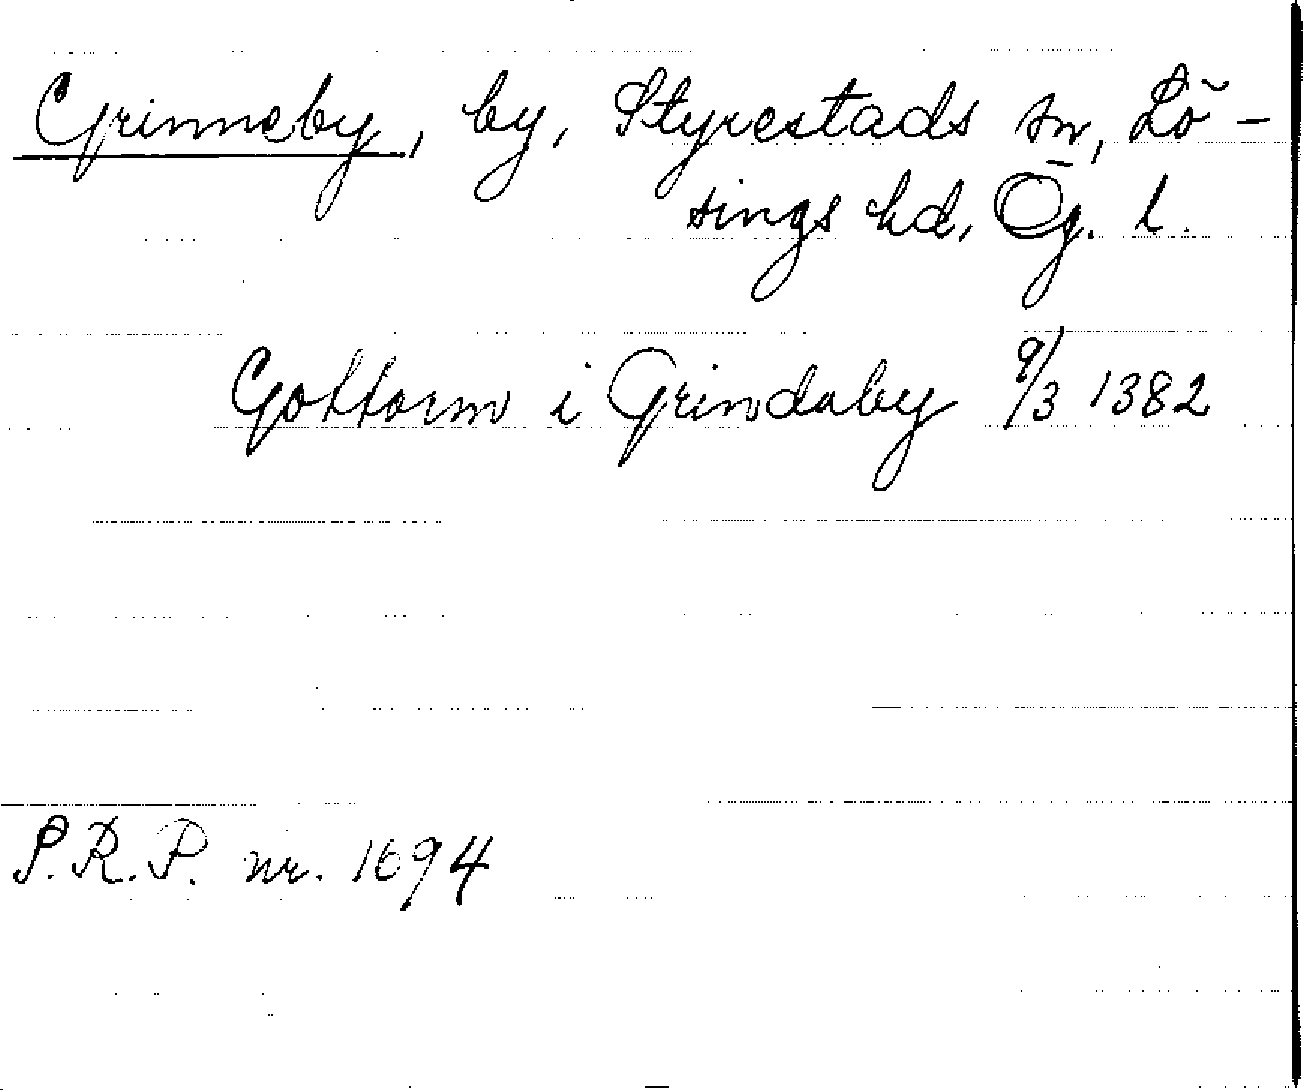 Grinneby, by, Styrestads sn, Lö-
sings hd, Ög. l.
Gottorm i Grindaby 9/3 1382
S.R.P. nr. 1694